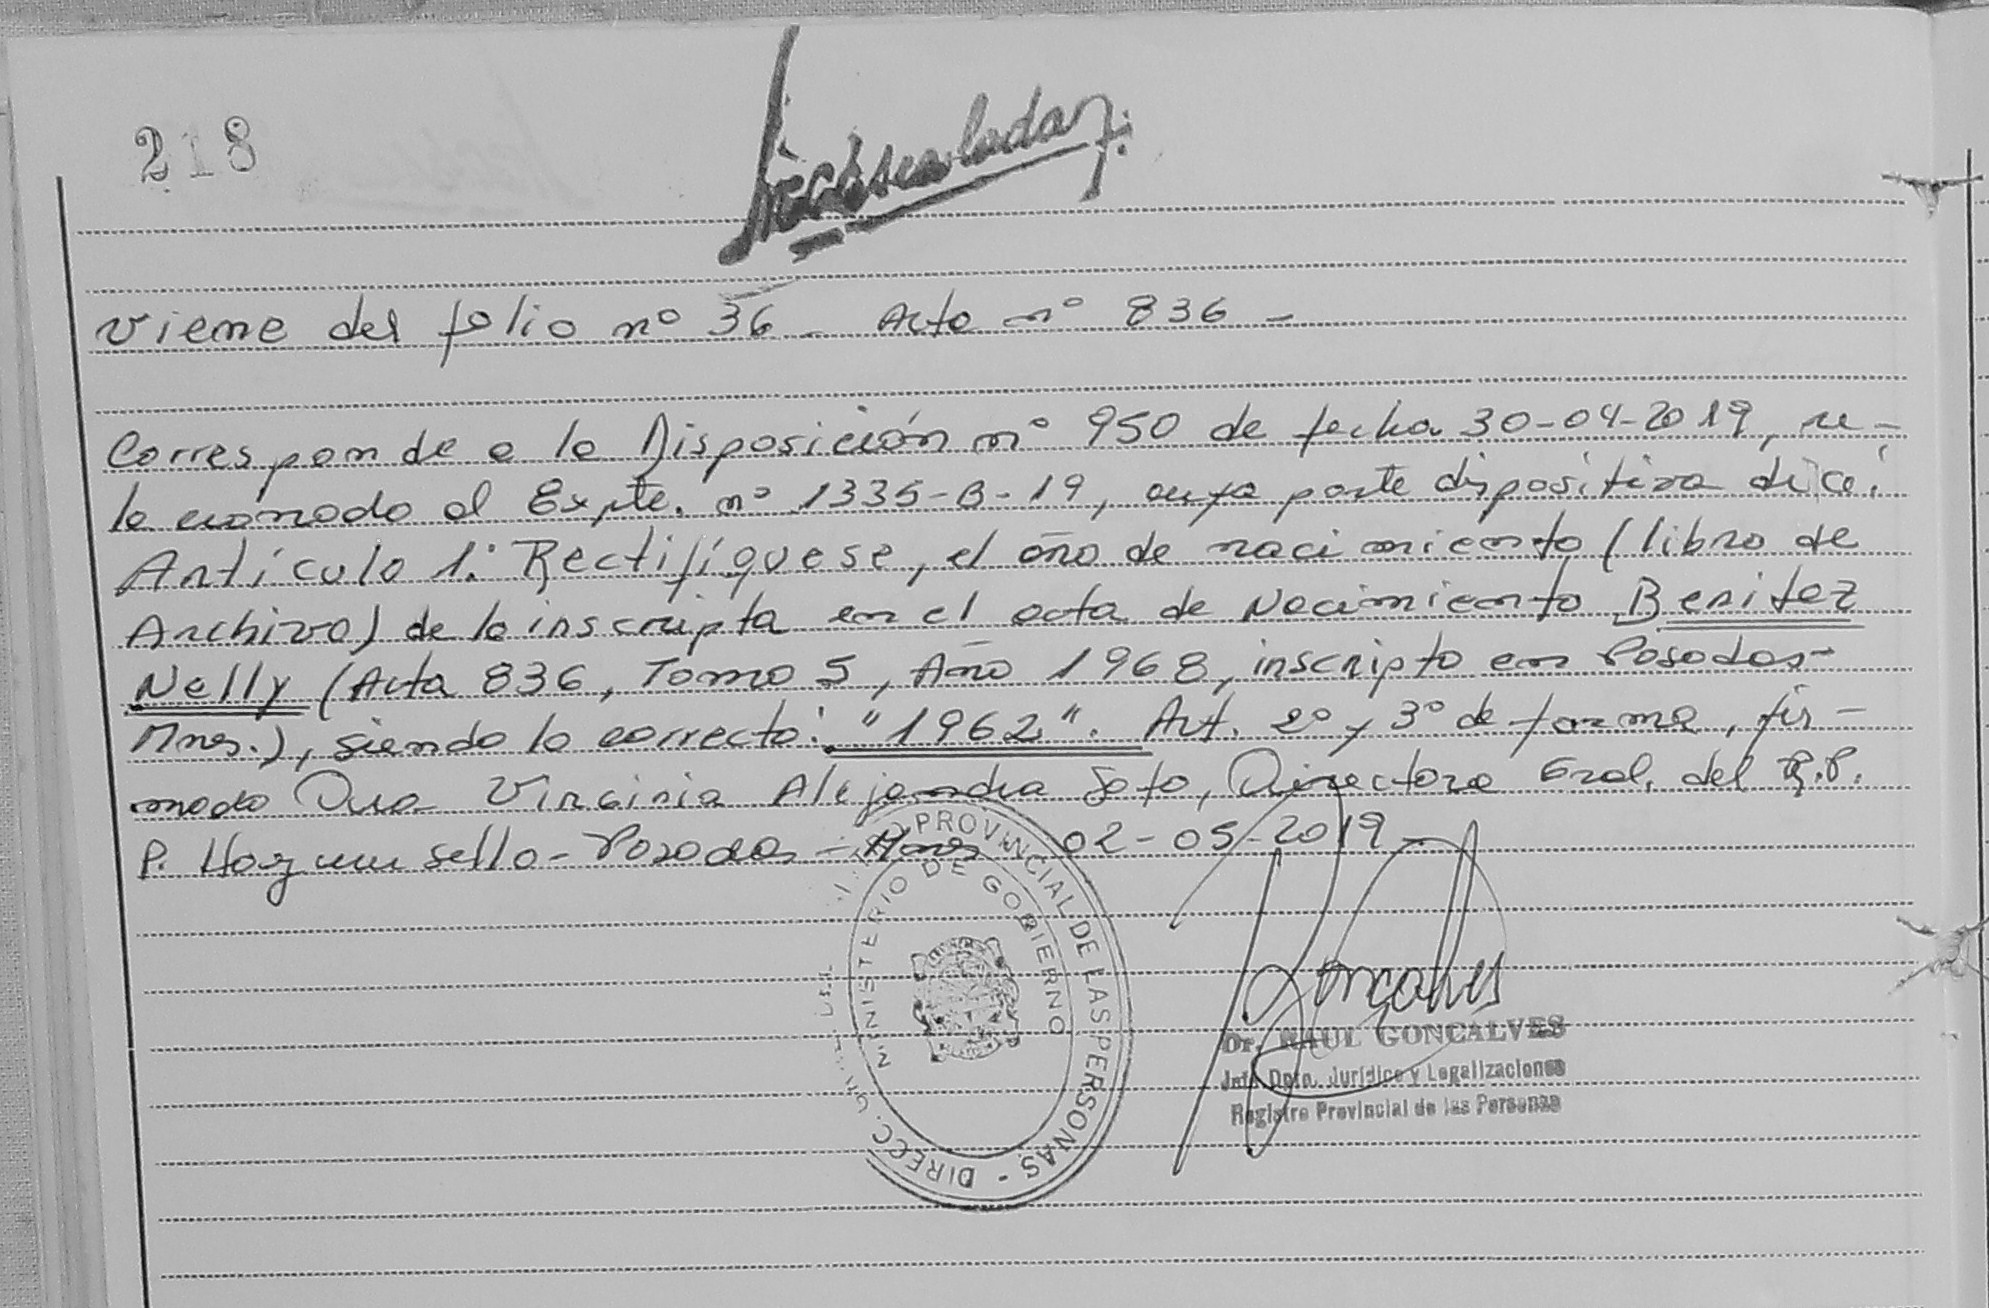 218
viene del folio nº 36 - Acta nº 836 -
Corresponde a la Disposición nº 950 de fecha 30-04-2019, re-
lacionado al Expte. nº 1335-B-19, cuya parte dispositiva dice:
Artículo 1: Rectifíquese, el año de nacimiento (libro de
Archivo) de la inscripta en el acta de Nacimiento Benitez
Nelly (Acta 836, Tomo 5, Año 1968, inscripto en Posadas-
Mnes.), siendo lo correcto: "1962". Art. 2º y 3º de forma, fir-
mado Dra Virginia Alejandra Soto, Directora Gral. del R.P.
P. Hay un sello - Posadas - Mnes 02-05-2019 -
PROVINCIAL DE LAS PERSONAS - DIRECC. G
MINISTERIO DE GOBIERNO
Goncalves
Dr. RAUL GONCALVES
Jefe Dpto. Jurídico y Legalizaciones
Registro Provincial de las Personas